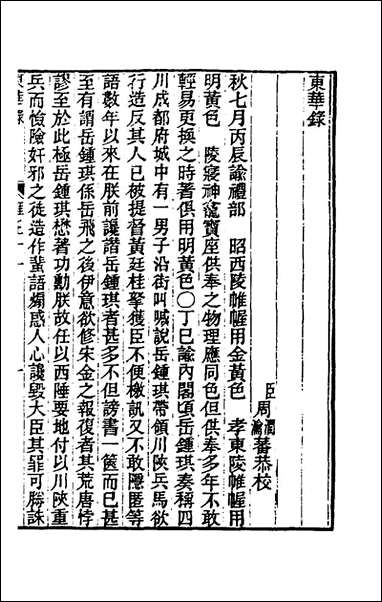 東華錄
臣周潤瀹蕃恭校
秋七月丙辰諭禮部　昭西陵帷幄用金黃色　孝東陵帷幄用
明黃色　陵寢神龕寶座供奉之物理應同色但供奉多年不敢
輕易更換之時著俱用明黃色〇丁巳諭內閣頃岳鍾琪奏稱四
川成都府城中有一男子沿街叫喊說岳鍾琪帶領川陝兵馬欲
行造反其人已被提督黃廷桂拏獲臣不便檄訊又不敢隱匿等
語數年以來在朕前讒譖岳鍾琪者甚多不但謗書一篋而已甚
至有謂岳鍾琪係岳飛之後伊意欲修宋金之報復者其荒唐悖
謬至於此極岳鍾琪懋著功勳朕故任以西陲要地付以川陝重
兵而憸險奸邪之徒造作蜚語煽惑人心讒毀大臣其罪可勝誅